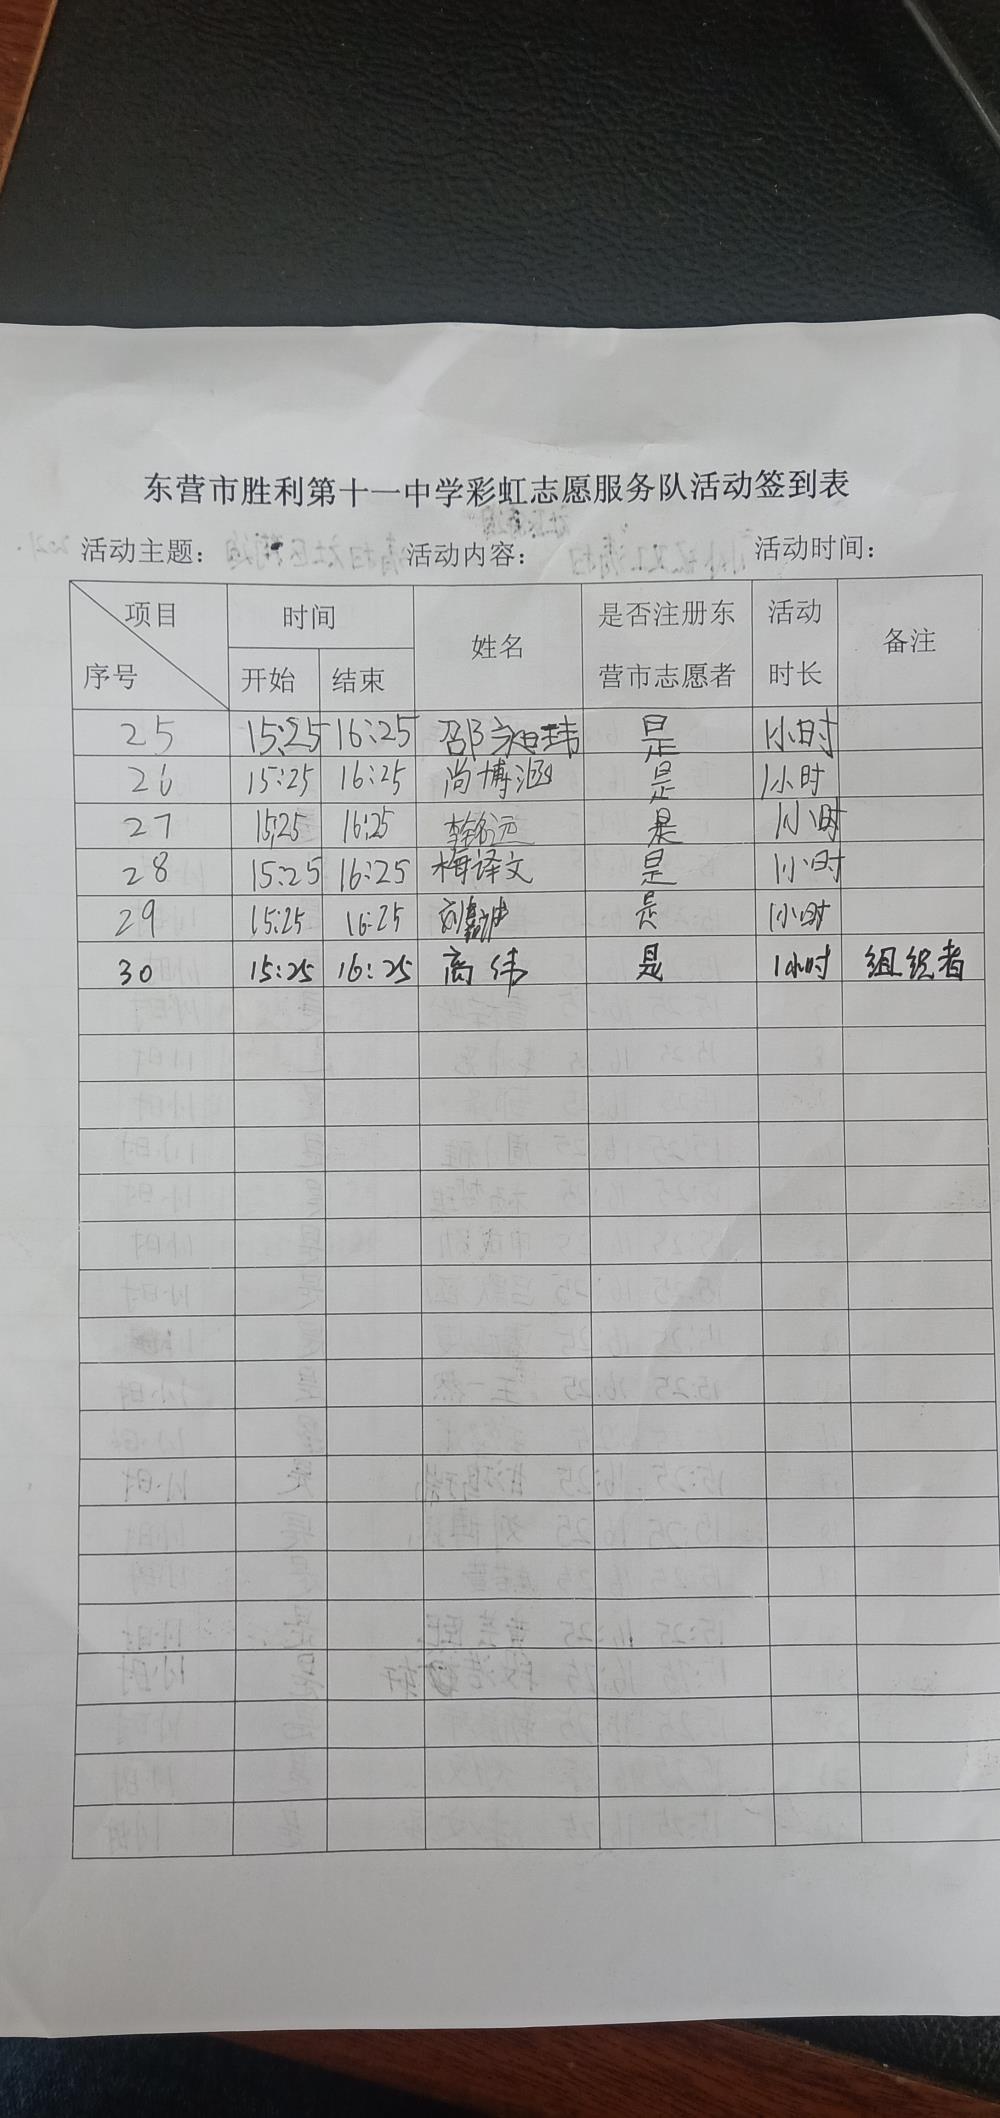 东营市胜利第十一中学彩虹志愿服务队活动签到表
活动主题： 活动内容： 活动时间：
项目 序号 时间 姓名 是否注册东营市志愿者 活动时长 备注
开始 结束
25 15:25 16:25 是 1小时
26 15:25 16:25 尚博涵 是 1小时
27 15:25 16:25 是 1小时
28 15:25 16:25 梅译文 是 1小时
29 15:25 16:25 是 1小时
30 15:25 16:25 高伟 是 1小时 组织者